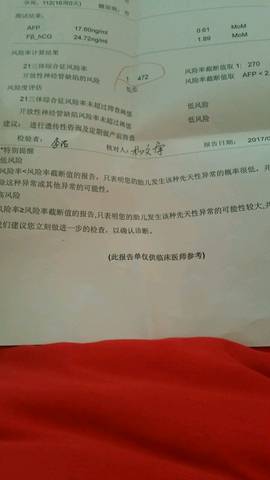 112(16周0天)
测试结果:
AFP 17.60ng/ml 0.61 MoM
Fβ_hCG 24.72ng/ml 1.89 MoM
风险率计算结果
21三体综合征风险率 1: 472 风险率截断值取 1: 270
开放性神经管缺陷的风险 风险率截断值 AFP < 2.
风险度评估
21三体综合征风险率未超过筛查阈值 低风险
开放性神经管缺陷风险率未超过阈值 低风险
建议: 进行遗传性咨询及定期做产前筛查
检验者: 核对人: 报告日期: 2017/0
*特别提醒
低风险
风险率<风险率截断值的报告,只表明您的胎儿发生该种先天性异常的概率很低,并
除这种异常或其他异常的可能性。
高风险
风险率≥风险率截断值的报告,只表明您的胎儿发生该种先天性异常的可能性较大,并
我们建议您立刻做进一步的检查,以确认诊断。
(此报告单仅供临床医师参考)